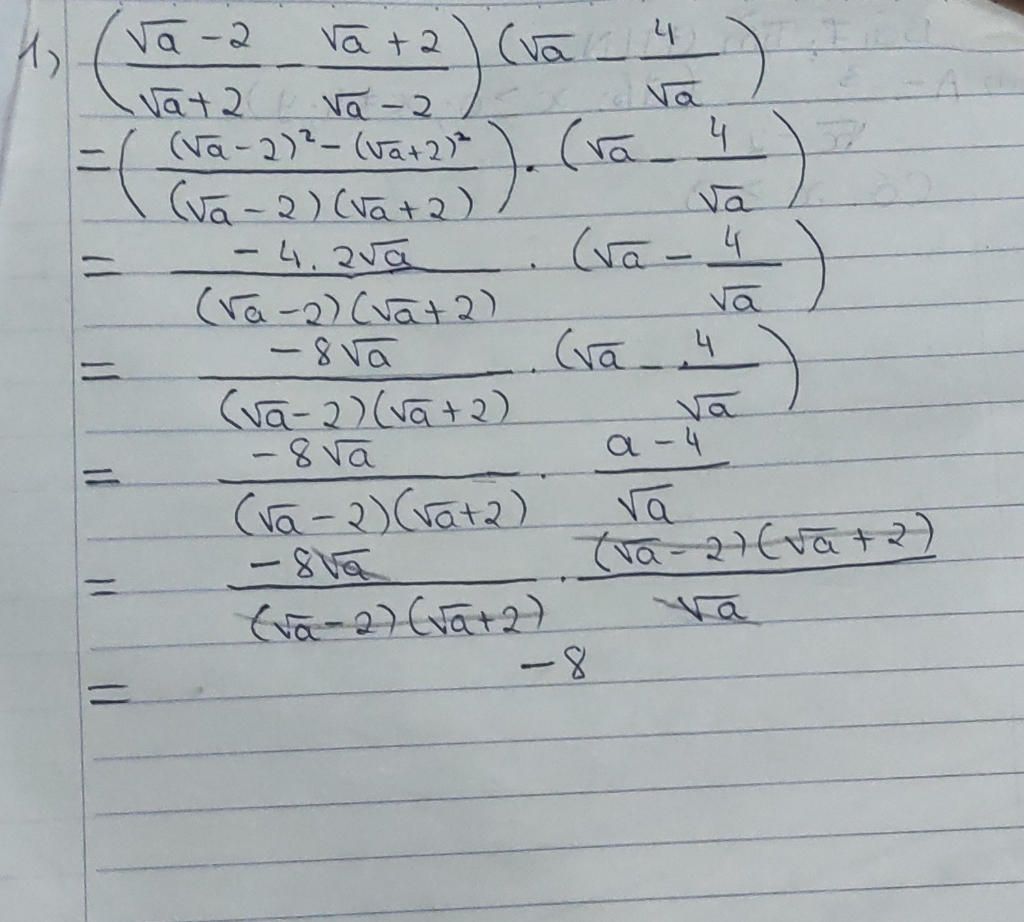 1, ( (√a - 2)/(√a + 2) - (√a + 2)/(√a - 2) ) (√a - 4/√a)
= ( ((√a - 2)² - (√a + 2)²)/((√a - 2)(√a + 2)) ) . (√a - 4/√a)
= (- 4. 2√a)/((√a - 2)(√a + 2)) . (√a - 4/√a)
= (- 8√a)/((√a - 2)(√a + 2)) . (√a - 4/√a)
= (- 8√a)/((√a - 2)(√a + 2)) . (a - 4)/√a
= (- 8√a)/((√a - 2)(√a + 2)) . ((√a - 2)(√a + 2))/√a
= - 8